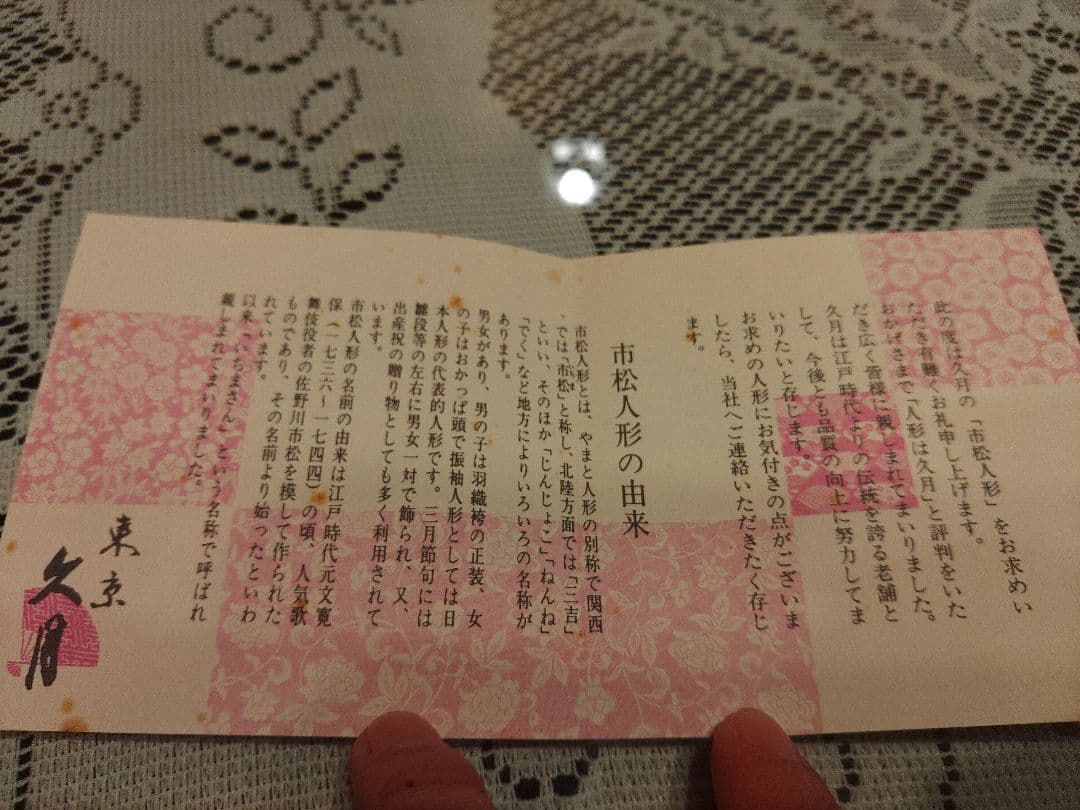 此の度は久月の「市松人形」をお求めい
ただき有難くお礼申し上げます。
おかげさまで「人形は久月」と評判をいた
だき広く皆様に親しまれてまいりました。
久月は江戸時代よりの伝統を誇る老舗と
して、今後とも品質の向上に努力してま
いりたいと存じます。
お求めの人形にお気付きの点がございま
したら、当社へご連絡いただきたく存じ
ます。
市松人形の由来
市松人形とは、やまと人形の別称で関西
では「市松」と称し、北陸方面では「三吉」
といい、そのほか「じんじょこ」「ねんね」
「でく」など地方によりいろいろの名称が
あります。
男女があり、男の子は羽織袴の正装、女
の子はおかっぱ頭で振袖人形としては日
本人形の代表的人形です。三月節句には
雛段等の左右に男女一対で飾られ、又、
出産祝の贈り物としても多く利用されて
います。
市松人形の名前の由来は江戸時代元文寛
保(一七三六〜一七四四)の頃、人気歌
舞伎役者の佐野川市松を模して作られた
ものであり、その名前より始ったといわ
れています。
以来「いちまさん」という名称で呼ばれ
親しまれてまいりました。
東京
久月